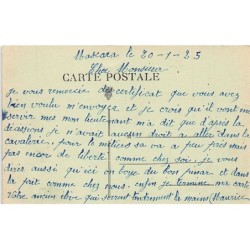 Mascara le 20-1-25
Cher Monsieur
CARTE POSTALE
je vous remercie des certificat que vous avez
bien voulu m'envoyer et je crois qu'il vont me
servir mes mon lieutenant m'a dit que d'après la
décassion je n'avait aucusn droit a aller dans la
cavalerie, pour le métiers sa va a peu près mais
pas encor de liberté comme chez soi, je vous
dirés aussi qu'ici on boye du bon pinar, et dans
le prit comme chez nous. enfin je termine ma carte
Votre ancien élève qui serrent tendrement le mains Maurice